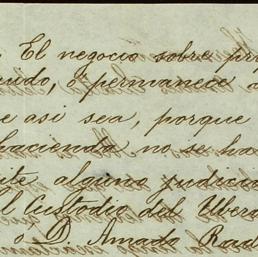 El negocio sobre pr
undo, o permanece a
e asi sea, porque
hacienda no se ha
ite alguno judicio
l Custodio del Ubera
o D. Amado Rad